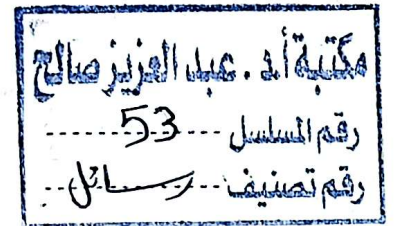 مكتبة أ.د. عبد العزيز صالح
رقم المسلسل ------53------
رقم تصنيف ---رسائل---